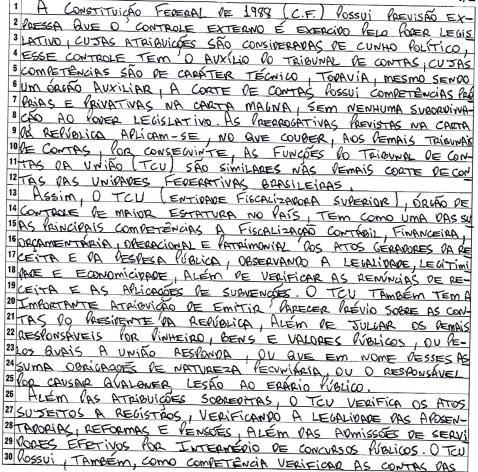 1 A CONSTITUIÇÃO FEDERAL DE 1988 (C.F.) POSSUI PREVISÃO EX-
2 PRESSA QUE O CONTROLE EXTERNO É EXERCIDO PELO PODER LEGIS
3 LATIVO, CUJAS ATRIBUIÇÕES SÃO CONSIDERADAS DE CUNHO POLÍTICO,
4 ESSE CONTROLE TEM O AUXÍLIO DO TRIBUNAL DE CONTAS, CUJAS
5 COMPETÊNCIAS SÃO DE CARÁTER TÉCNICO, TODAVIA, MESMO SENDO
6 UM ÓRGÃO AUXILIAR, A CORTE DE CONTAS POSSUI COMPETÊNCIAS PRÓ
7 PRIAS E PRIVATIVAS NA CARTA MAGNA, SEM NENHUMA SUBORDINA-
8 ÇÃO AO PODER LEGISLATIVO. AS PRERROGATIVAS PREVISTAS NA CARTA
9 DA REPÚBLICA APLICAM-SE, NO QUE COUBER, AOS DEMAIS TRIBUNAIS
10 DE CONTAS, POR CONSEGUINTE, AS FUNÇÕES DO TRIBUNAL DE CON-
11 TAS DA UNIÃO (TCU) SÃO SIMILARES NAS DEMAIS CORTE DE CON
12 TAS DAS UNIDADES FEDERATIVAS BRASILEIRAS.
13 ASSIM, O TCU (ENTIDADE FISCALIZADORA SUPERIOR), ÓRGÃO DE
14 CONTROLE DE MAIOR ESTATURA NO PAÍS, TEM COMO UMA DAS SU
15 AS PRINCIPAIS COMPETÊNCIAS A FISCALIZAÇÃO CONTÁBIL, FINANCEIRA,
16 ORÇAMENTÁRIA, OPERACIONAL E PATRIMONIAL DOS ATOS GERADORES DA RE
17 CEITA E DA DESPESA PÚBLICA, OBSERVANDO A LEGALIDADE, LEGITIMI
18 DADE E ECONOMICIDADE, ALÉM DE VERIFICAR AS RENÚNCIAS DE RE-
19 CEITA E AS APLICAÇÕES DE SUBVENÇÕES. O TCU TAMBÉM TEM A
20 IMPORTANTE ATRIBUIÇÃO DE EMITIR PARECER PRÉVIO SOBRE AS CON-
21 TAS DO PRESIDENTE DA REPÚBLICA, ALÉM DE JULGAR OS DEMAIS
22 RESPONSÁVEIS POR DINHEIRO, BENS E VALORES PÚBLICOS, OU PE-
23 LOS QUAIS A UNIÃO RESPONDA, OU QUE EM NOME DESSES AS
24 SUMA OBRIGAÇÕES DE NATUREZA PECUNIÁRIA, OU O RESPONSÁVEL
25 POR CAUSAR QUALQUER LESÃO AO ERÁRIO PÚBLICO.
26 ALÉM DAS ATRIBUIÇÕES SOBREDITAS, O TCU VERIFICA OS ATOS
27 SUJEITOS A REGISTROS, VERIFICANDO A LEGALIDADE DAS APOSEN-
28 TADORIAS, REFORMAS E PENSÕES, ALÉM DAS ADMISSÕES DE SERVI
29 DORES EFETIVOS POR INTERMÉDIO DE CONCURSOS PÚBLICOS. O TCU
30 POSSUI, TAMBÉM, COMO COMPETÊNCIA VERIFICAR AS CONTAS DAS